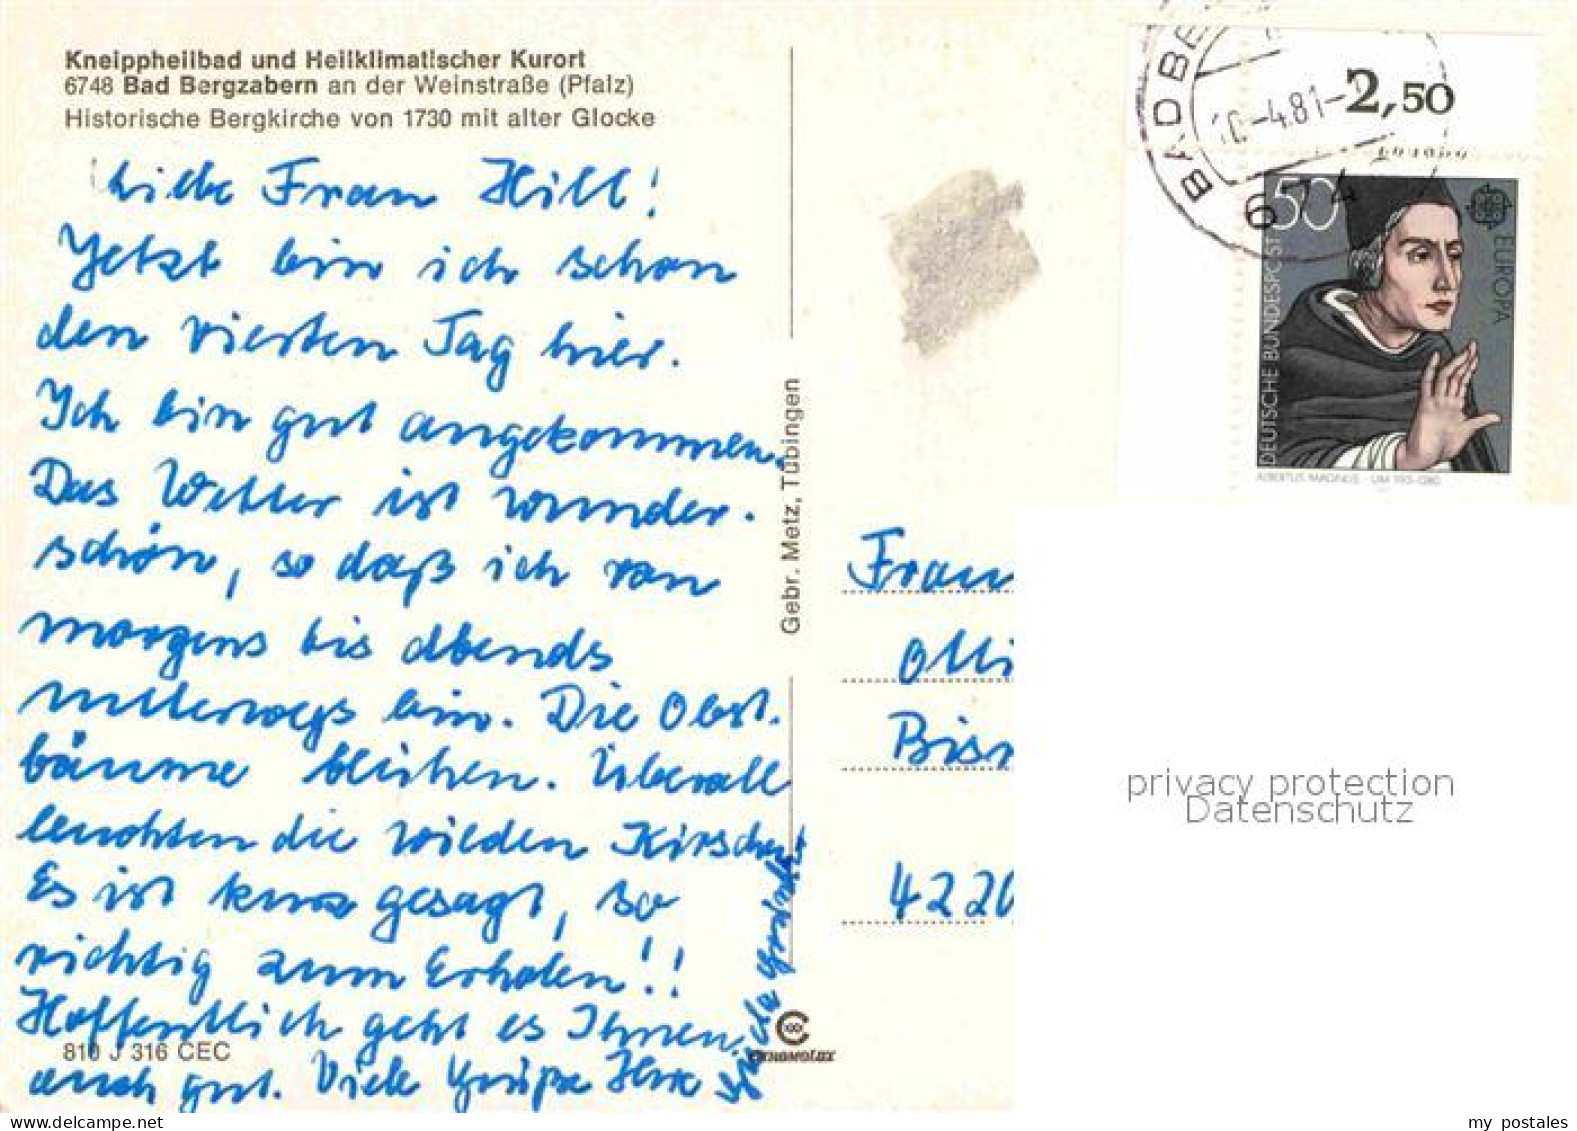 Kneippheilbad und Heilklimatischer Kurort
6748 Bad Bergzabern an der Weinstraße (Pfalz)
Historische Bergkirche von 1730 mit alter Glocke
Liebe Frau Hill!
Jetzt bin ich schon
den vierten Tag hier.
Ich bin gut angekommen.
Das Wetter ist wunder-
schön, so daß ich von
morgens bis abends
unterwegs bin. Die Obst-
bäume blühen. Überall
leuchten die wilden Kirschen.
Es ist kurz gesagt, so
richtig zum Erholen!!
Hoffentlich geht es Ihnen
auch gut. Viele Grüße Ihre
810 J 316 CEC
Gebr. Metz, Tübingen
CHROMOLUX
BAD BE
10.-4.81-
674
2,50
50
DEUTSCHE BUNDESPOST
EUROPA
ALBERTUS MAGNUS · UM 1193-1280
Frau
Olli
Bis
4220
privacy protection
Datenschutz
my postales
www.delcampe.net